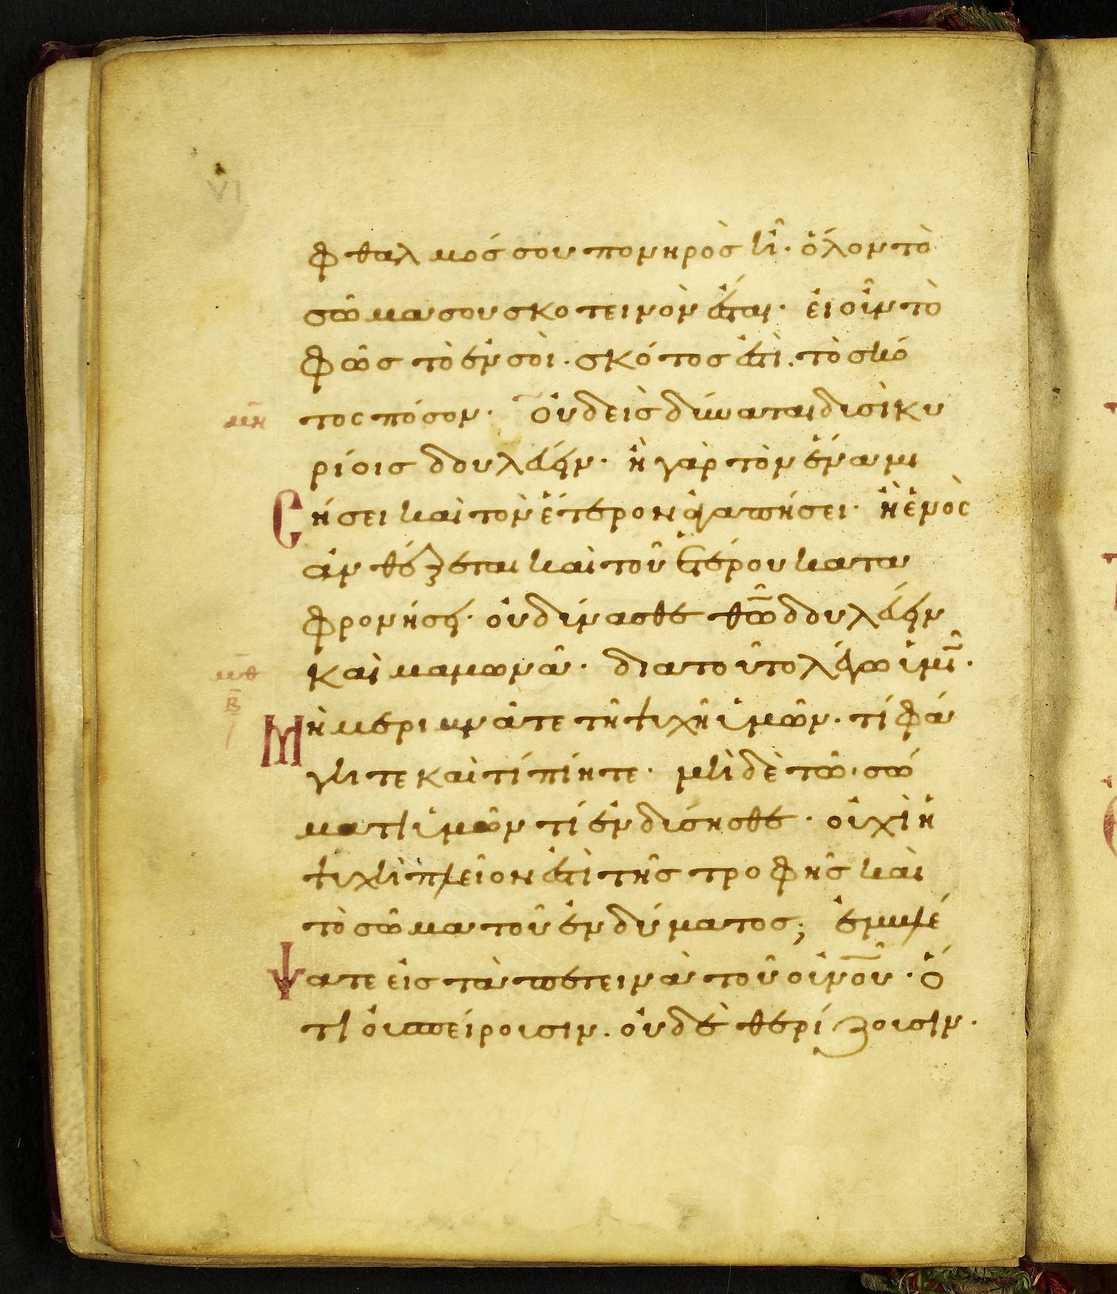 VI
φθαλμός σου πονηρὸς ἦ· ὅλον τὸ
σῶμα σου σκοτεινὸν ἔσται· εἰ οὖν τὸ
φῶς τὸ ἐν σοὶ· σκότος ἐστὶ. τὸ σκό
μη τος πόσον· Οὐδεὶς δύναται δυσὶ κυ
ρίοις δουλεύειν· ἢ γὰρ τὸν ἕνα μι
σήσει καὶ τὸν ἕτερον ἀγαπήσει· ἢ ἑνὸς
ἀνθέξεται καὶ τοῦ ἑτέρου κατα
φρονήσει· οὐ δύνασθε θω̅ δουλεύειν
μθ καὶ μαμωνᾶ· διατοῦτο λέγω ὑμῖν·
Μὴ μεριμνᾶτε τῆ ψυχῆ ὑμῶν· τί φά
γητε καὶ τί πίητε· μὴ δὲ τῶ σώ
ματι ὑμῶν τί ἐνδύσησθε· οὐχὶ ἡ
ψυχὴ πλεῖον ἐστὶ τῆς τροφῆς καὶ
τὸ σῶμα τοῦ ἐνδύματος; ἐμβλέ
ψατε εἰς τὰ πετεινὰ τοῦ οὐνοῦ· ὅ
τι οὐ σπείρουσιν. οὐδὲ θερίζουσιν·